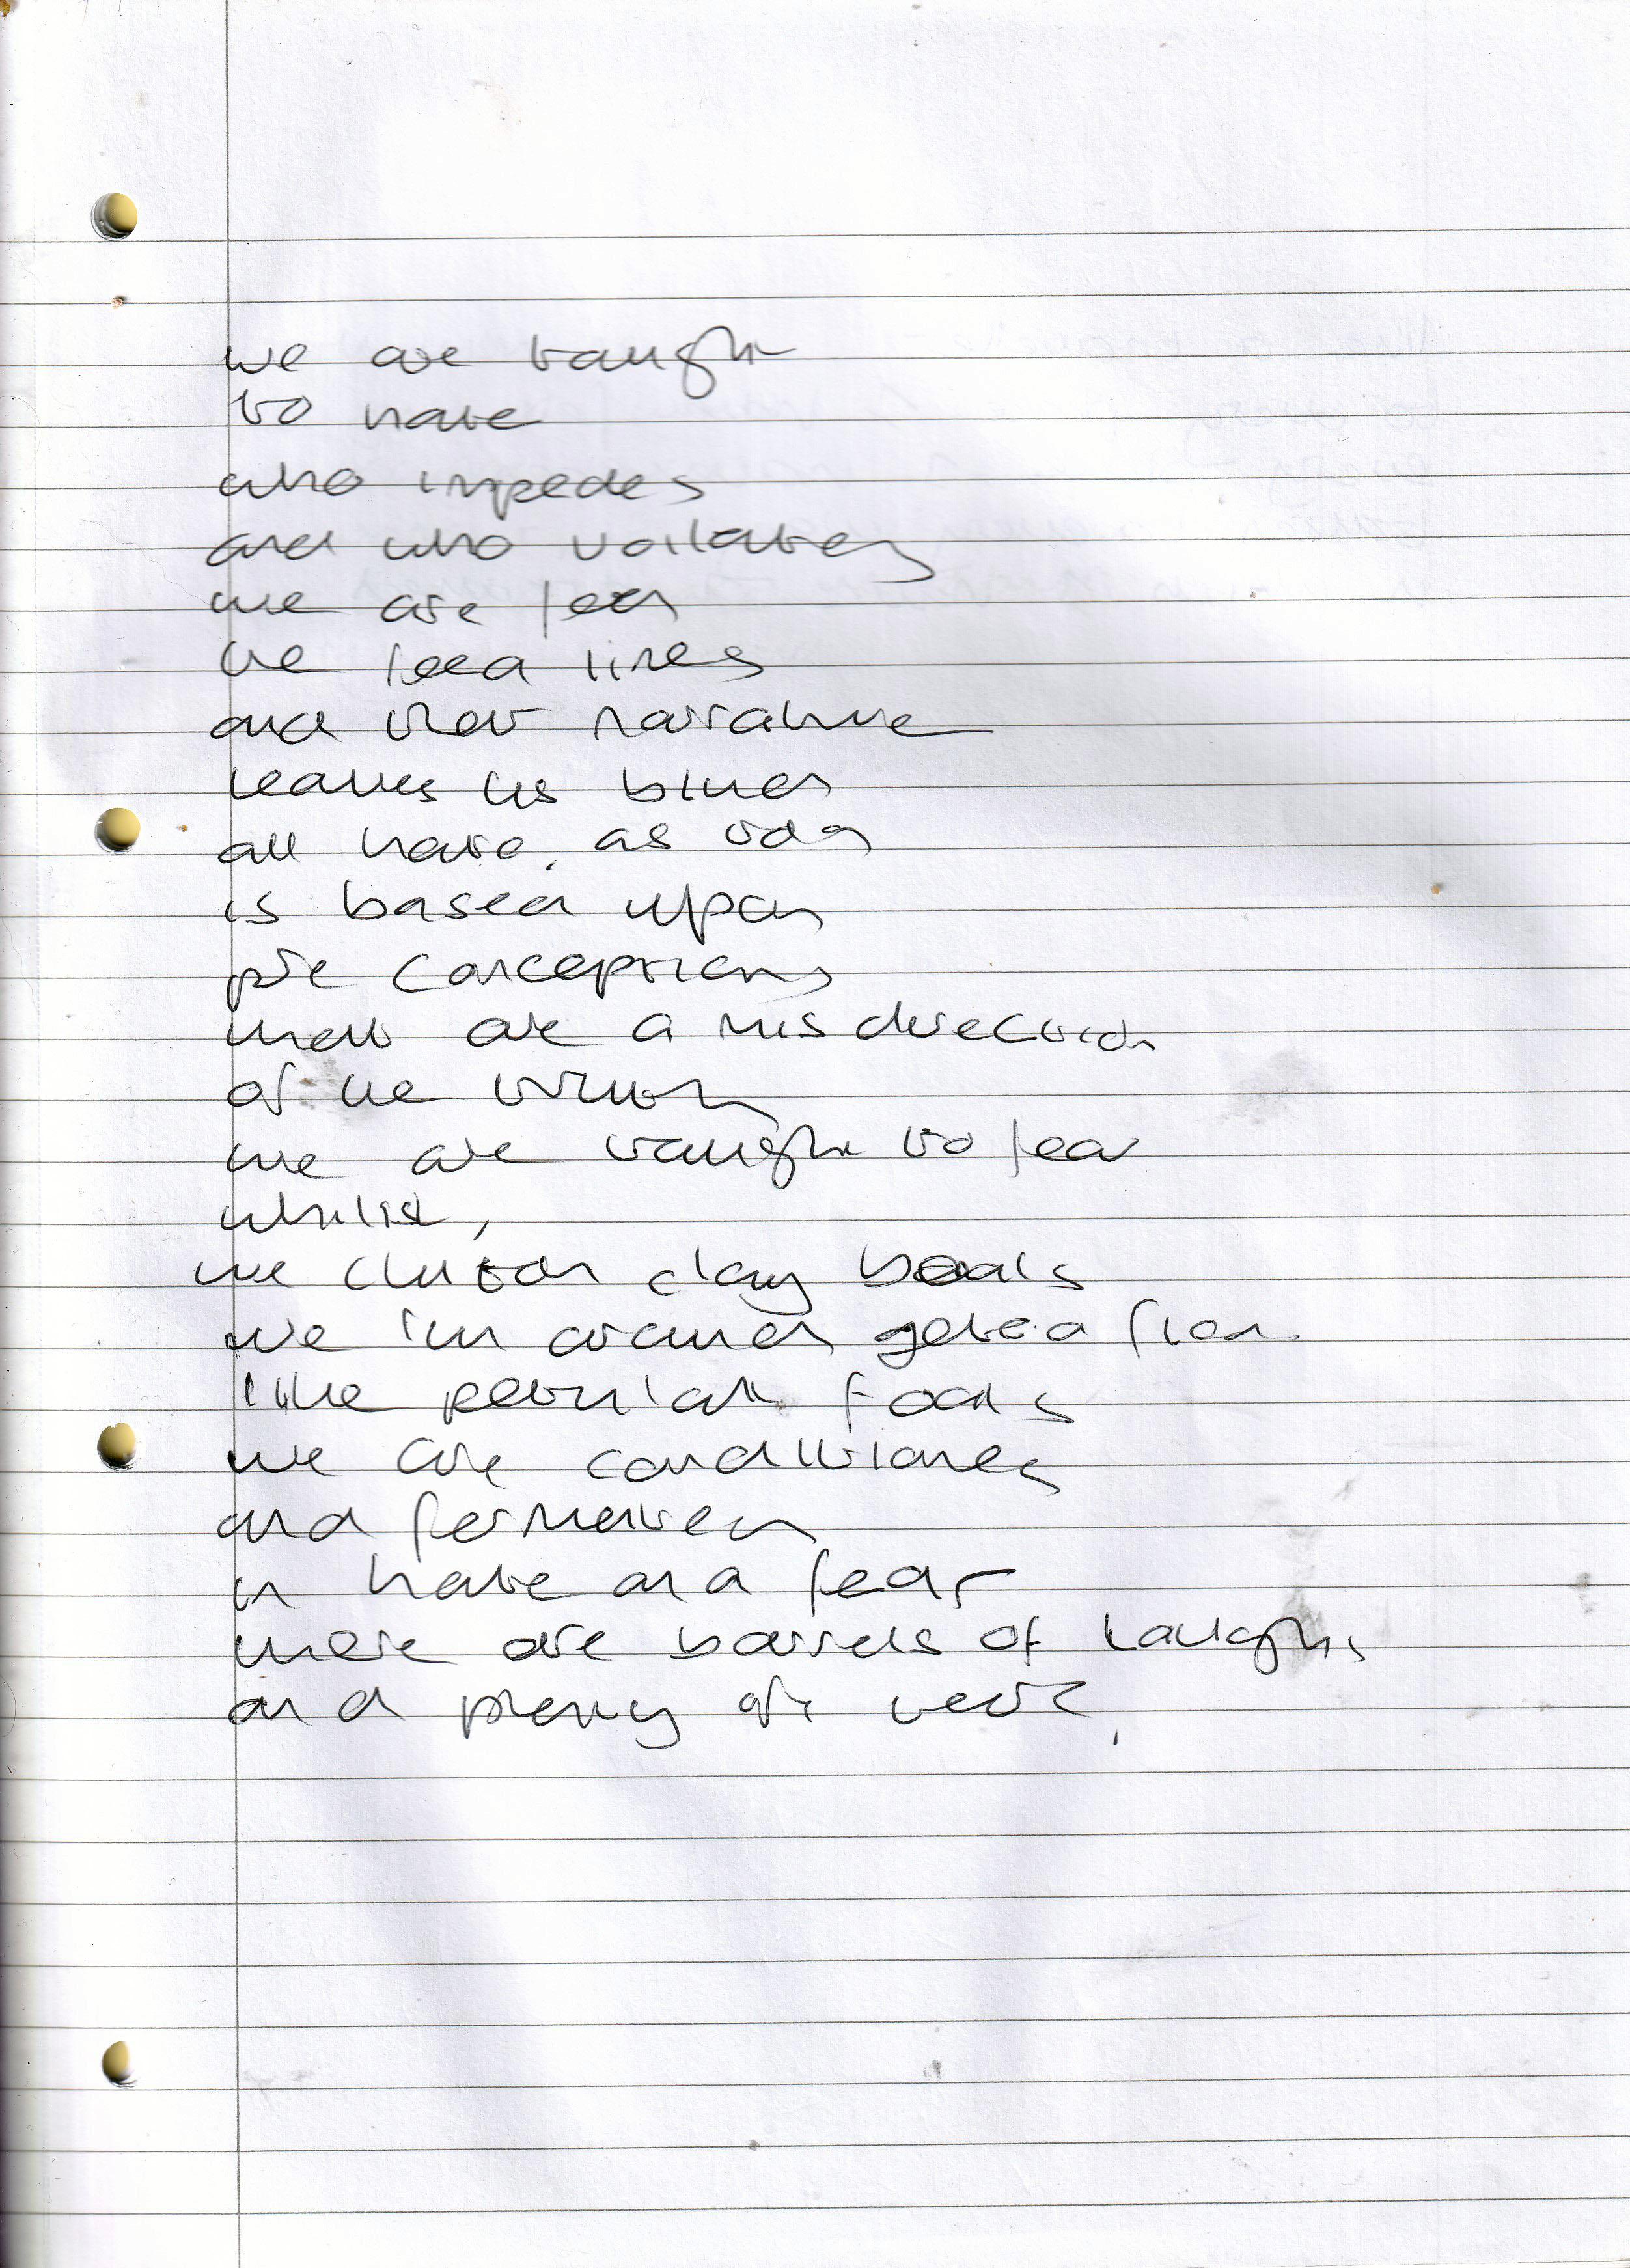 we are taught
to hate
who impedes
and who voilates
we are fed
the feed lines
and that narrative
leaves us blind
all hate, as
is based upon
pre conceptions
that are a misdirection
of the truth
we are taught to fear
whilst,
we clutch clay
we around
like petulant fools
we are conditioned
and fermented
in hate and fear
there are barrels of laughs
and plenty of